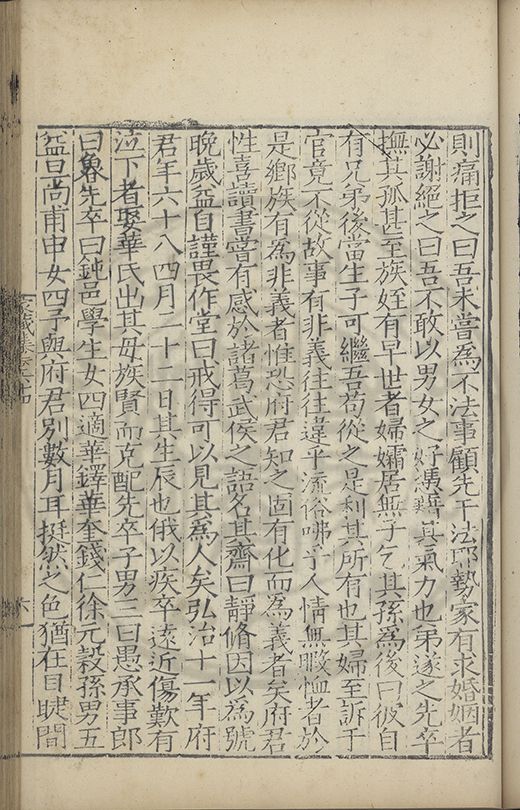 則痛拒之曰吾未嘗為不法事顧先干法耶勢家有求婚姻者
必謝絕之曰吾不敢以男女之好溷其氣力也弟遂之先卒
撫其孤甚至族姪有早世者婦孀居無子乞其孫為後曰彼自
有兄弟後當生子可繼吾苟從之是利其所有也其婦至訴于
官竟不從故事有非義往往違乎流俗咈乎人情無暇恤者於
是鄉族有為非義者惟恐府君知之固有化而為義者矣府君
性喜讀書嘗有感於諸葛武侯之語名其齋曰靜脩因以為號
晚歲益自謹畏作堂曰戒得可以見其為人矣弘治十一年府
君年六十八四月二十二日其生辰也俄以疾卒遠近傷歎有
泣下者娶華氏出其母族賢而克配先卒子男三曰愚承事郎
曰魯先卒曰鈍邑學生女四適華鐸華奎錢仁徐元穀孫男五
孟旦尚甫申女四予與府君別數月耳挺然之色猶在目睫間